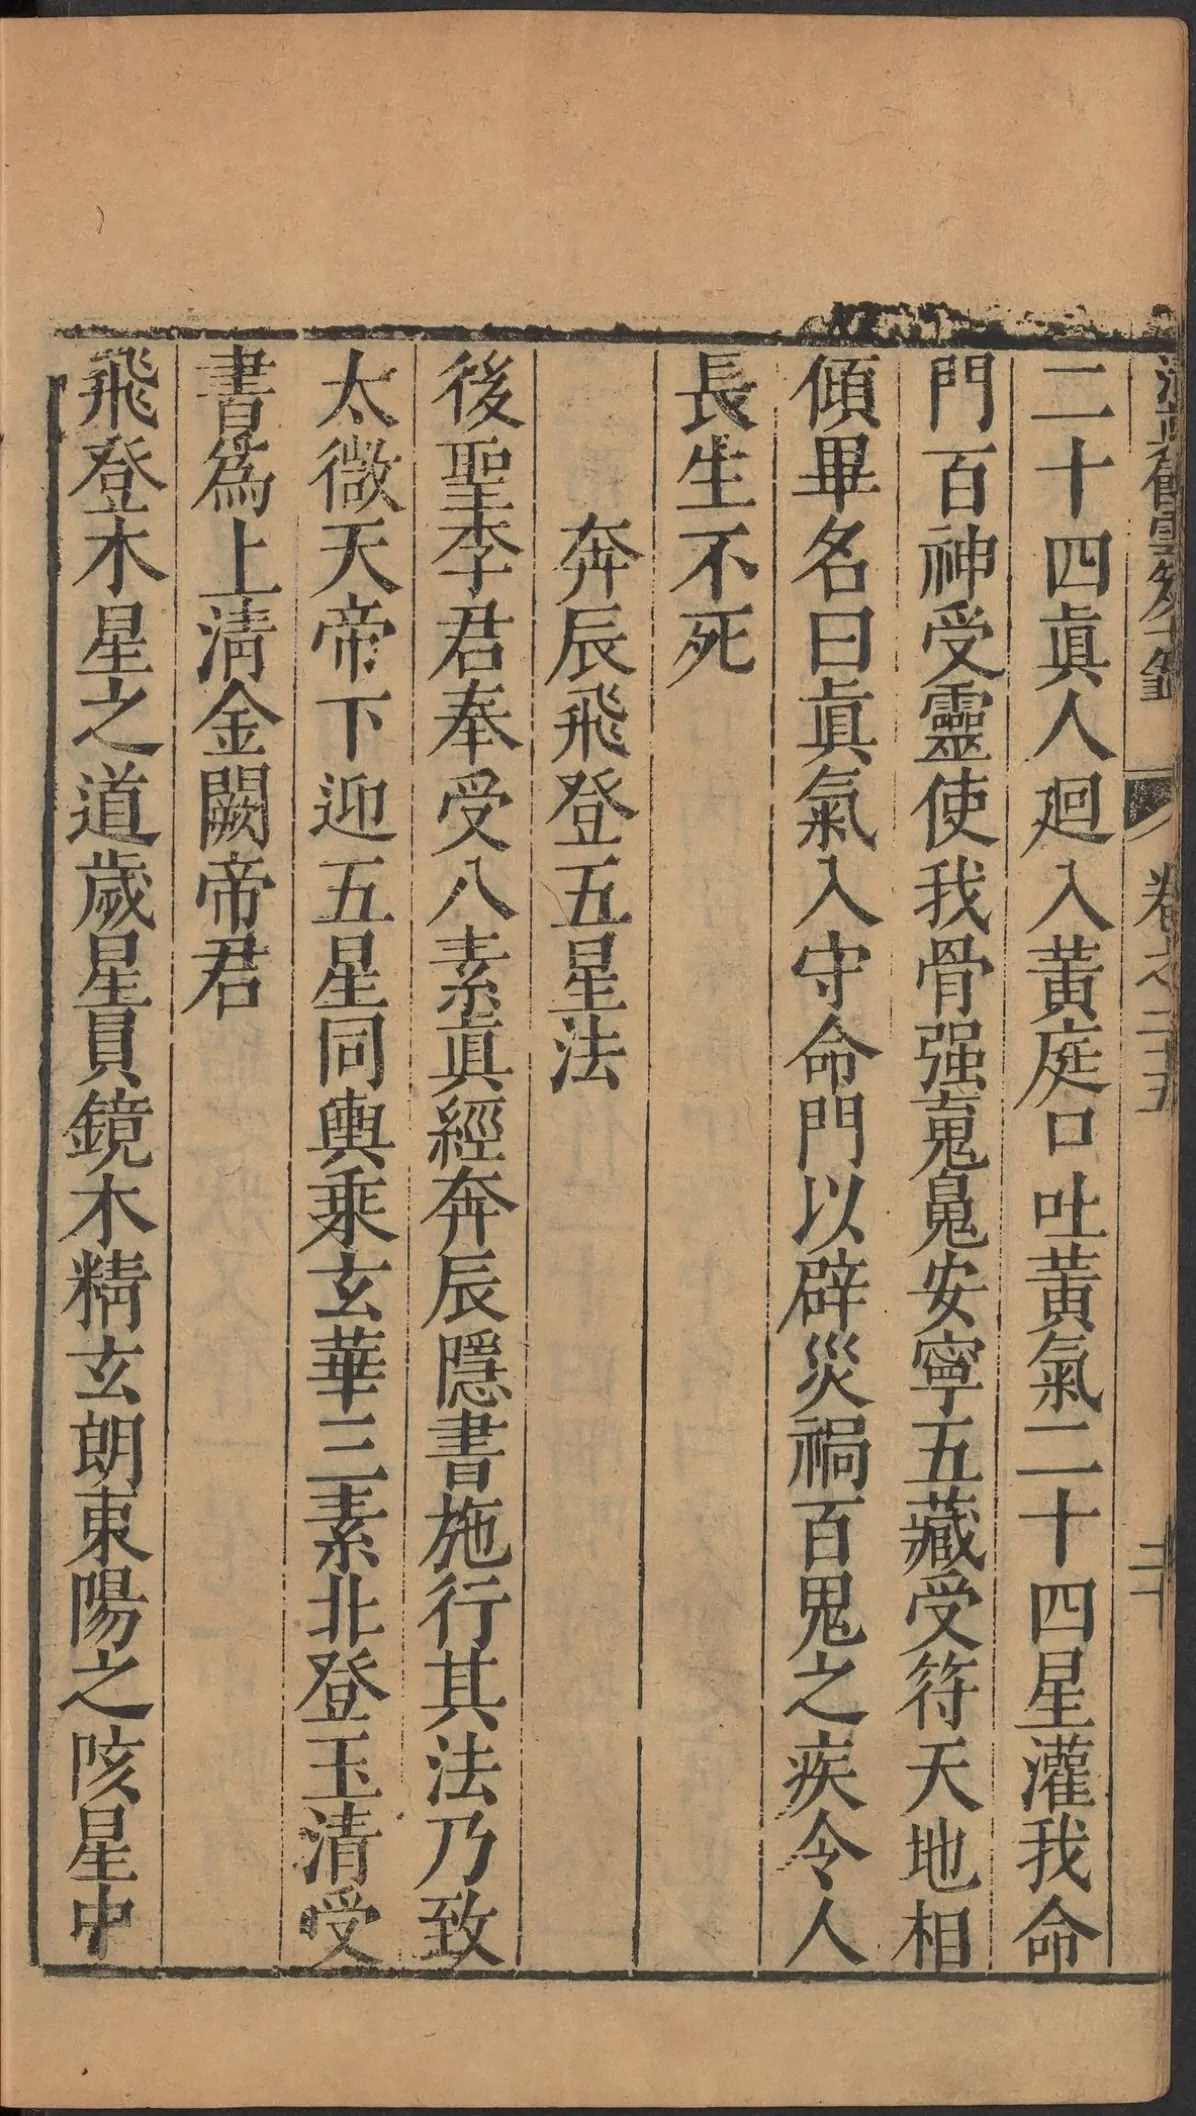 卷之二十五
二十
二十四眞人廻入黃庭口吐黃氣二十四星灌我命
門百神受靈使我骨强䰟䰟安寧五藏受符天地相
傾畢名曰眞氣入守命門以辟災禍百鬼之疾令人
長生不死
奔辰飛登五星法
後聖李君奉受八素眞經奔辰隱書施行其法乃致
太微天帝下迎五星同輿乘玄華三素北登玉清受
書為上清金闕帝君
飛登木星之道歲星員鏡木精玄朗東陽之咳星中